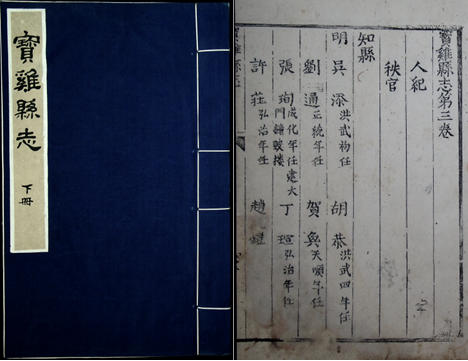 寶雞縣志
下冊
寶雞縣志第三卷
人紀
秩官
知縣
明 吳添 洪武初任 胡恭 洪武四年任
劉通 正統年任 賀 天順年任
張珣 成化年任建大門譙樓 丁 弘治年任
許莊 弘治年任 趙
寶雞縣志